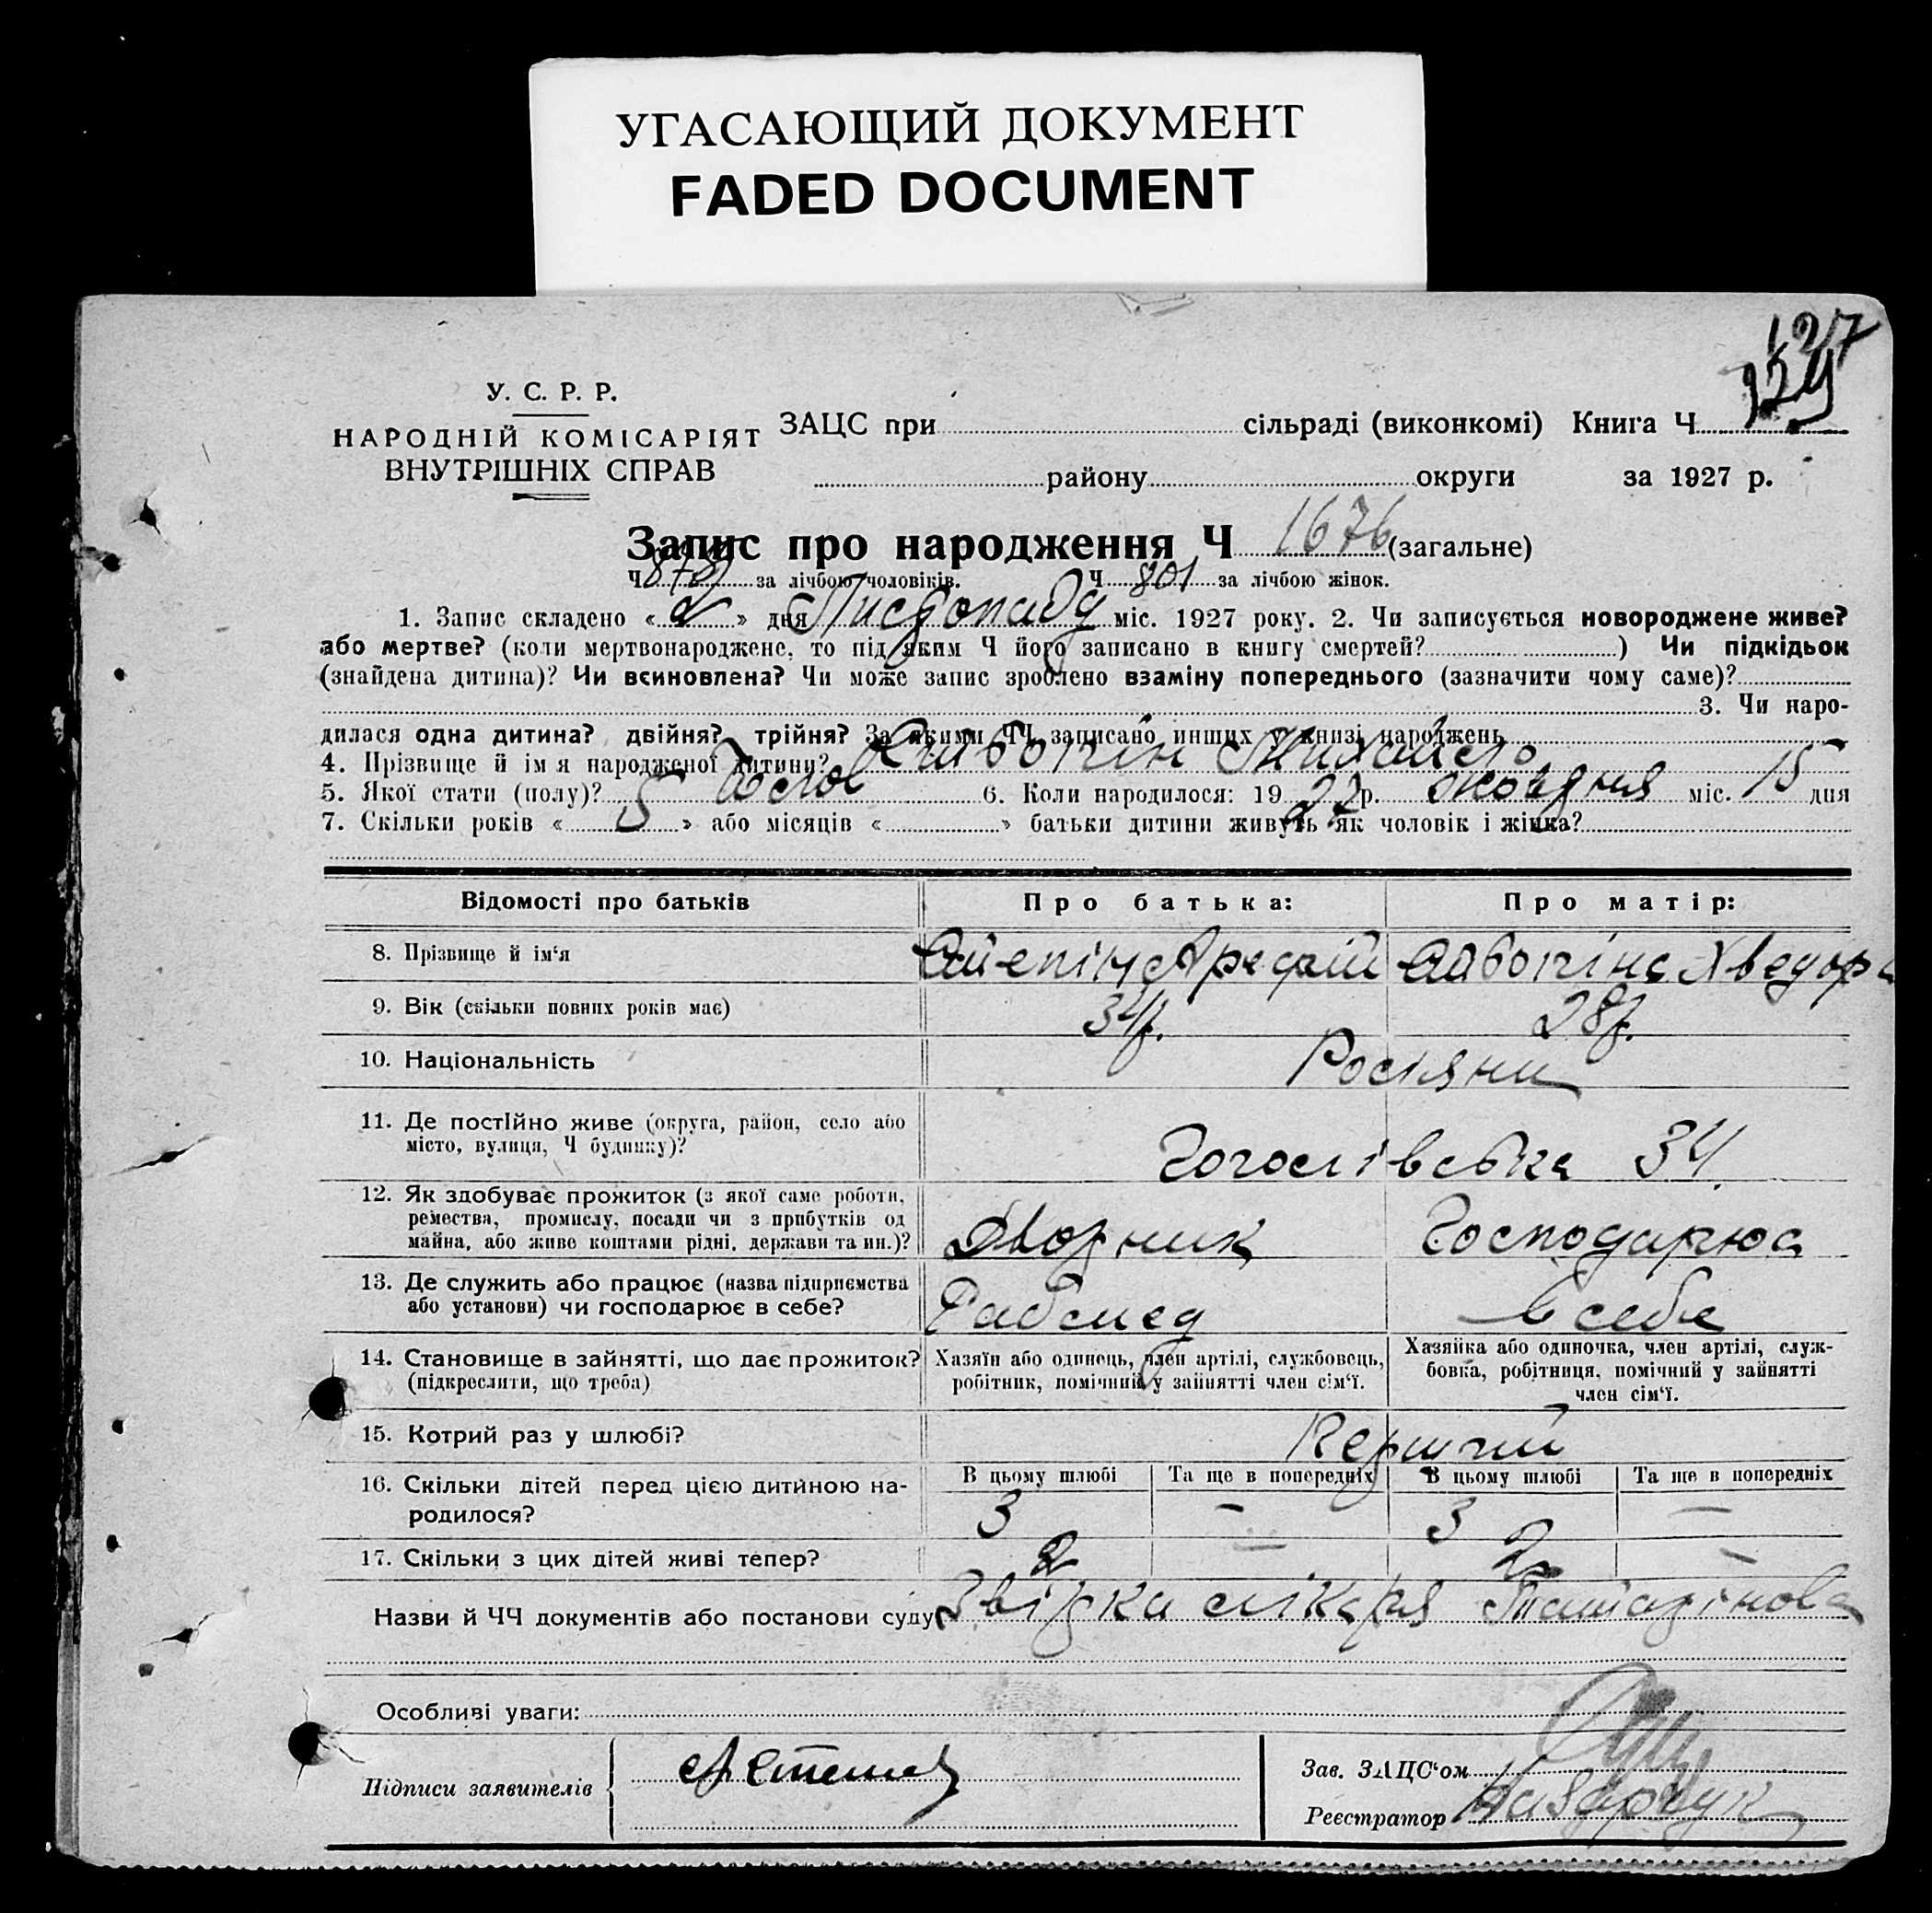 УГАСАЮЩИЙ ДОКУМЕНТ
FADED DOCUMENT
127
У. С. Р. Р.
НАРОДНІЙ КОМІСАРІЯТ
ВНУТРІШНІХ СПРАВ
ЗАЦС при сільраді (виконкомі) Книга Ч
району округи за 1927 р.
Запис про народження Ч 1676 (загальне)
Ч за лічбою чоловіків. Ч 801 за лічбою жінок.
1. Запис складено « 2 » дня Листопаду міс. 1927 року. 2. Чи записується новороджене живе?
або мертве? (коли мертвонароджене, то під яким Ч його записано в книгу смертей? ) Чи підкідьок
(знайдена дитина)? Чи всиновлена? Чи може запис зроблено взаміну попереднього (зазначити чому саме)?
3. Чи наро-
дилася одна дитина? двійня? трійня? За якими ЧЧ записано инших у книзі народжень
4. Прізвище й ім я народженої дитини?
5. Якої стати (полу)? Чолов 6. Коли народилося: 19 27 р. жовтня міс. 15 дня
7. Скільки років « 5 » або місяців « » батьки дитини живуть як чоловік і жінка?
Відомості про батьків Про батька: Про матір:
8. Прізвище й ім‘я
9. Вік (скільки повних років має) 34р. 28р.
10. Національність Росіяни
11. Де постійно живе (округа, район, село або
місто, вулиця, Ч будинку)? Гоголівська 34
12. Як здобуває прожиток (з якої саме роботи,
ремества, промислу, посади чи з прибутків од
майна, або живе коштами рідні, держави та ин.)? Дворник Господарює
13. Де служить або працює (назва підприємства
або установи) чи господарює в себе? Рабмед в себе
14. Становище в зайнятті, що дає прожиток?
(підкреслити, що треба)
Хазяїн або одинець, член артілі, службовець,
робітник, помічний у зайнятті член сім‘ї.
Хазяйка або одиночка, член артілі, служ-
бовка, робітниця, помічний у зайнятті
член сім‘ї.
15. Котрий раз у шлюбі? Перший
В цьому шлюбі Та ще в попередніх В цьому шлюбі Та ще в попередніх
16. Скільки дітей перед цією дитиною на-
родилося? 3 — 3 —
17. Скільки з цих дітей живі тепер? 2 — 2 —
Назви й ЧЧ документів або постанови суду Звістка лікаря
Особливі уваги:
Підписи заявителів
Зав. ЗАЦС‘ом
Реєстратор